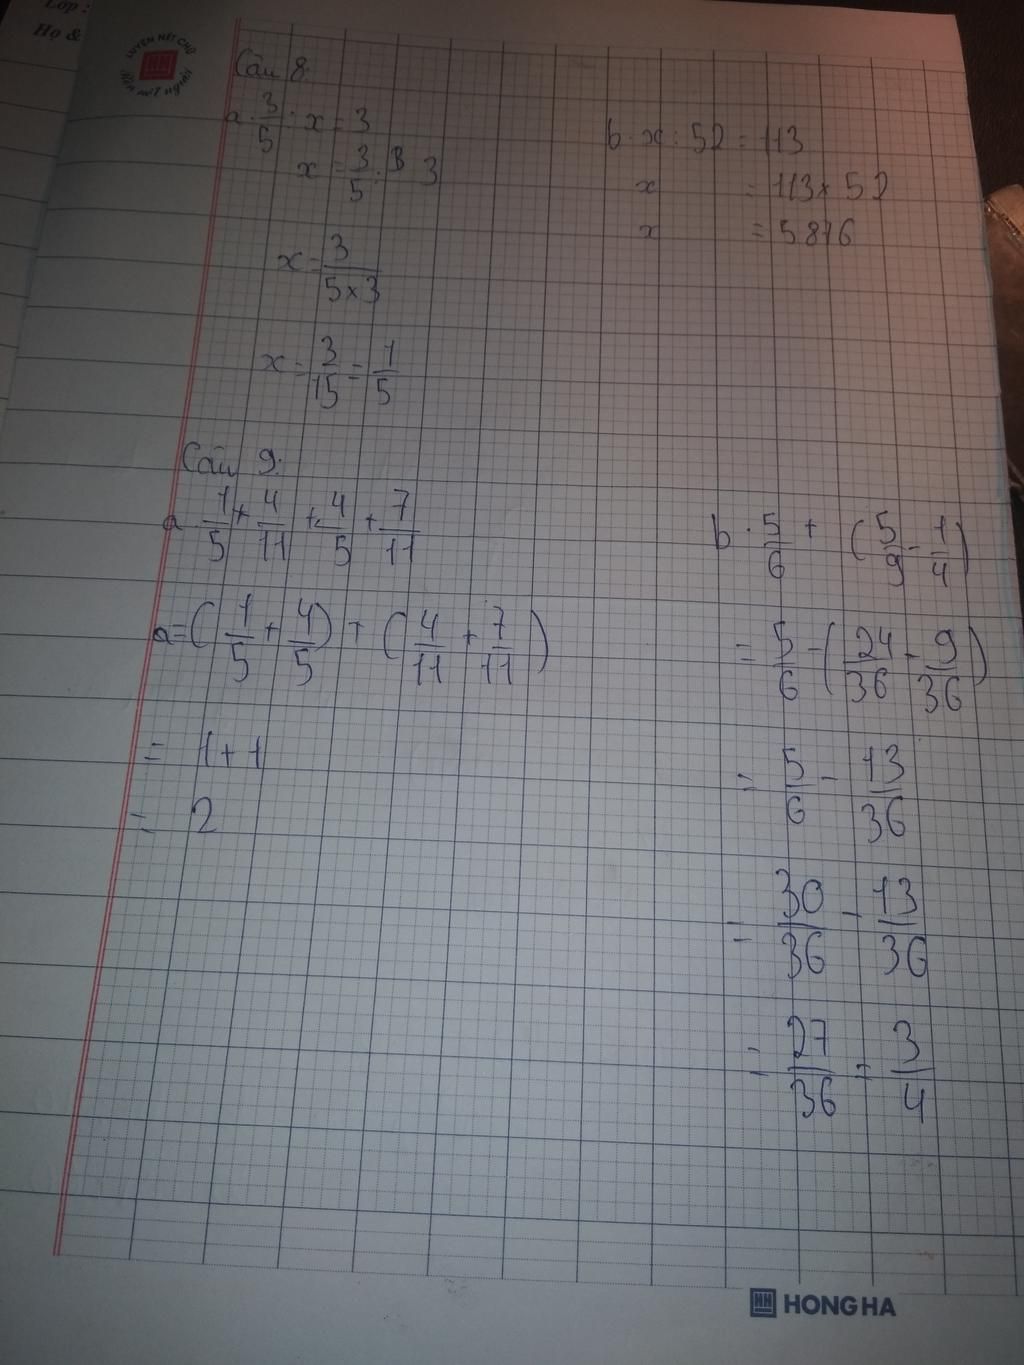 Lớp :
Họ &
LUYỆN NÉT CHỮ
Rèn nết người
Câu 8.
a. 3/5 : x = 3
x = 3/5 : 3
x = 3/(5 x 3)
x = 3/15 = 1/5
b. x : 52 = 113
x = 113 x 52
x = 5876
Câu 9.
a. 1/5 + 4/11 + 4/5 + 7/11
a = (1/5 + 4/5) + (4/11 + 7/11)
= 1 + 1
= 2
b. 5/6 + (5/9 - 1/4)
= 5/6 - (24/36 - 9/36)
= 5/6 - 13/36
= 30/36 - 13/36
= 27/36 = 3/4
HH HONG HA